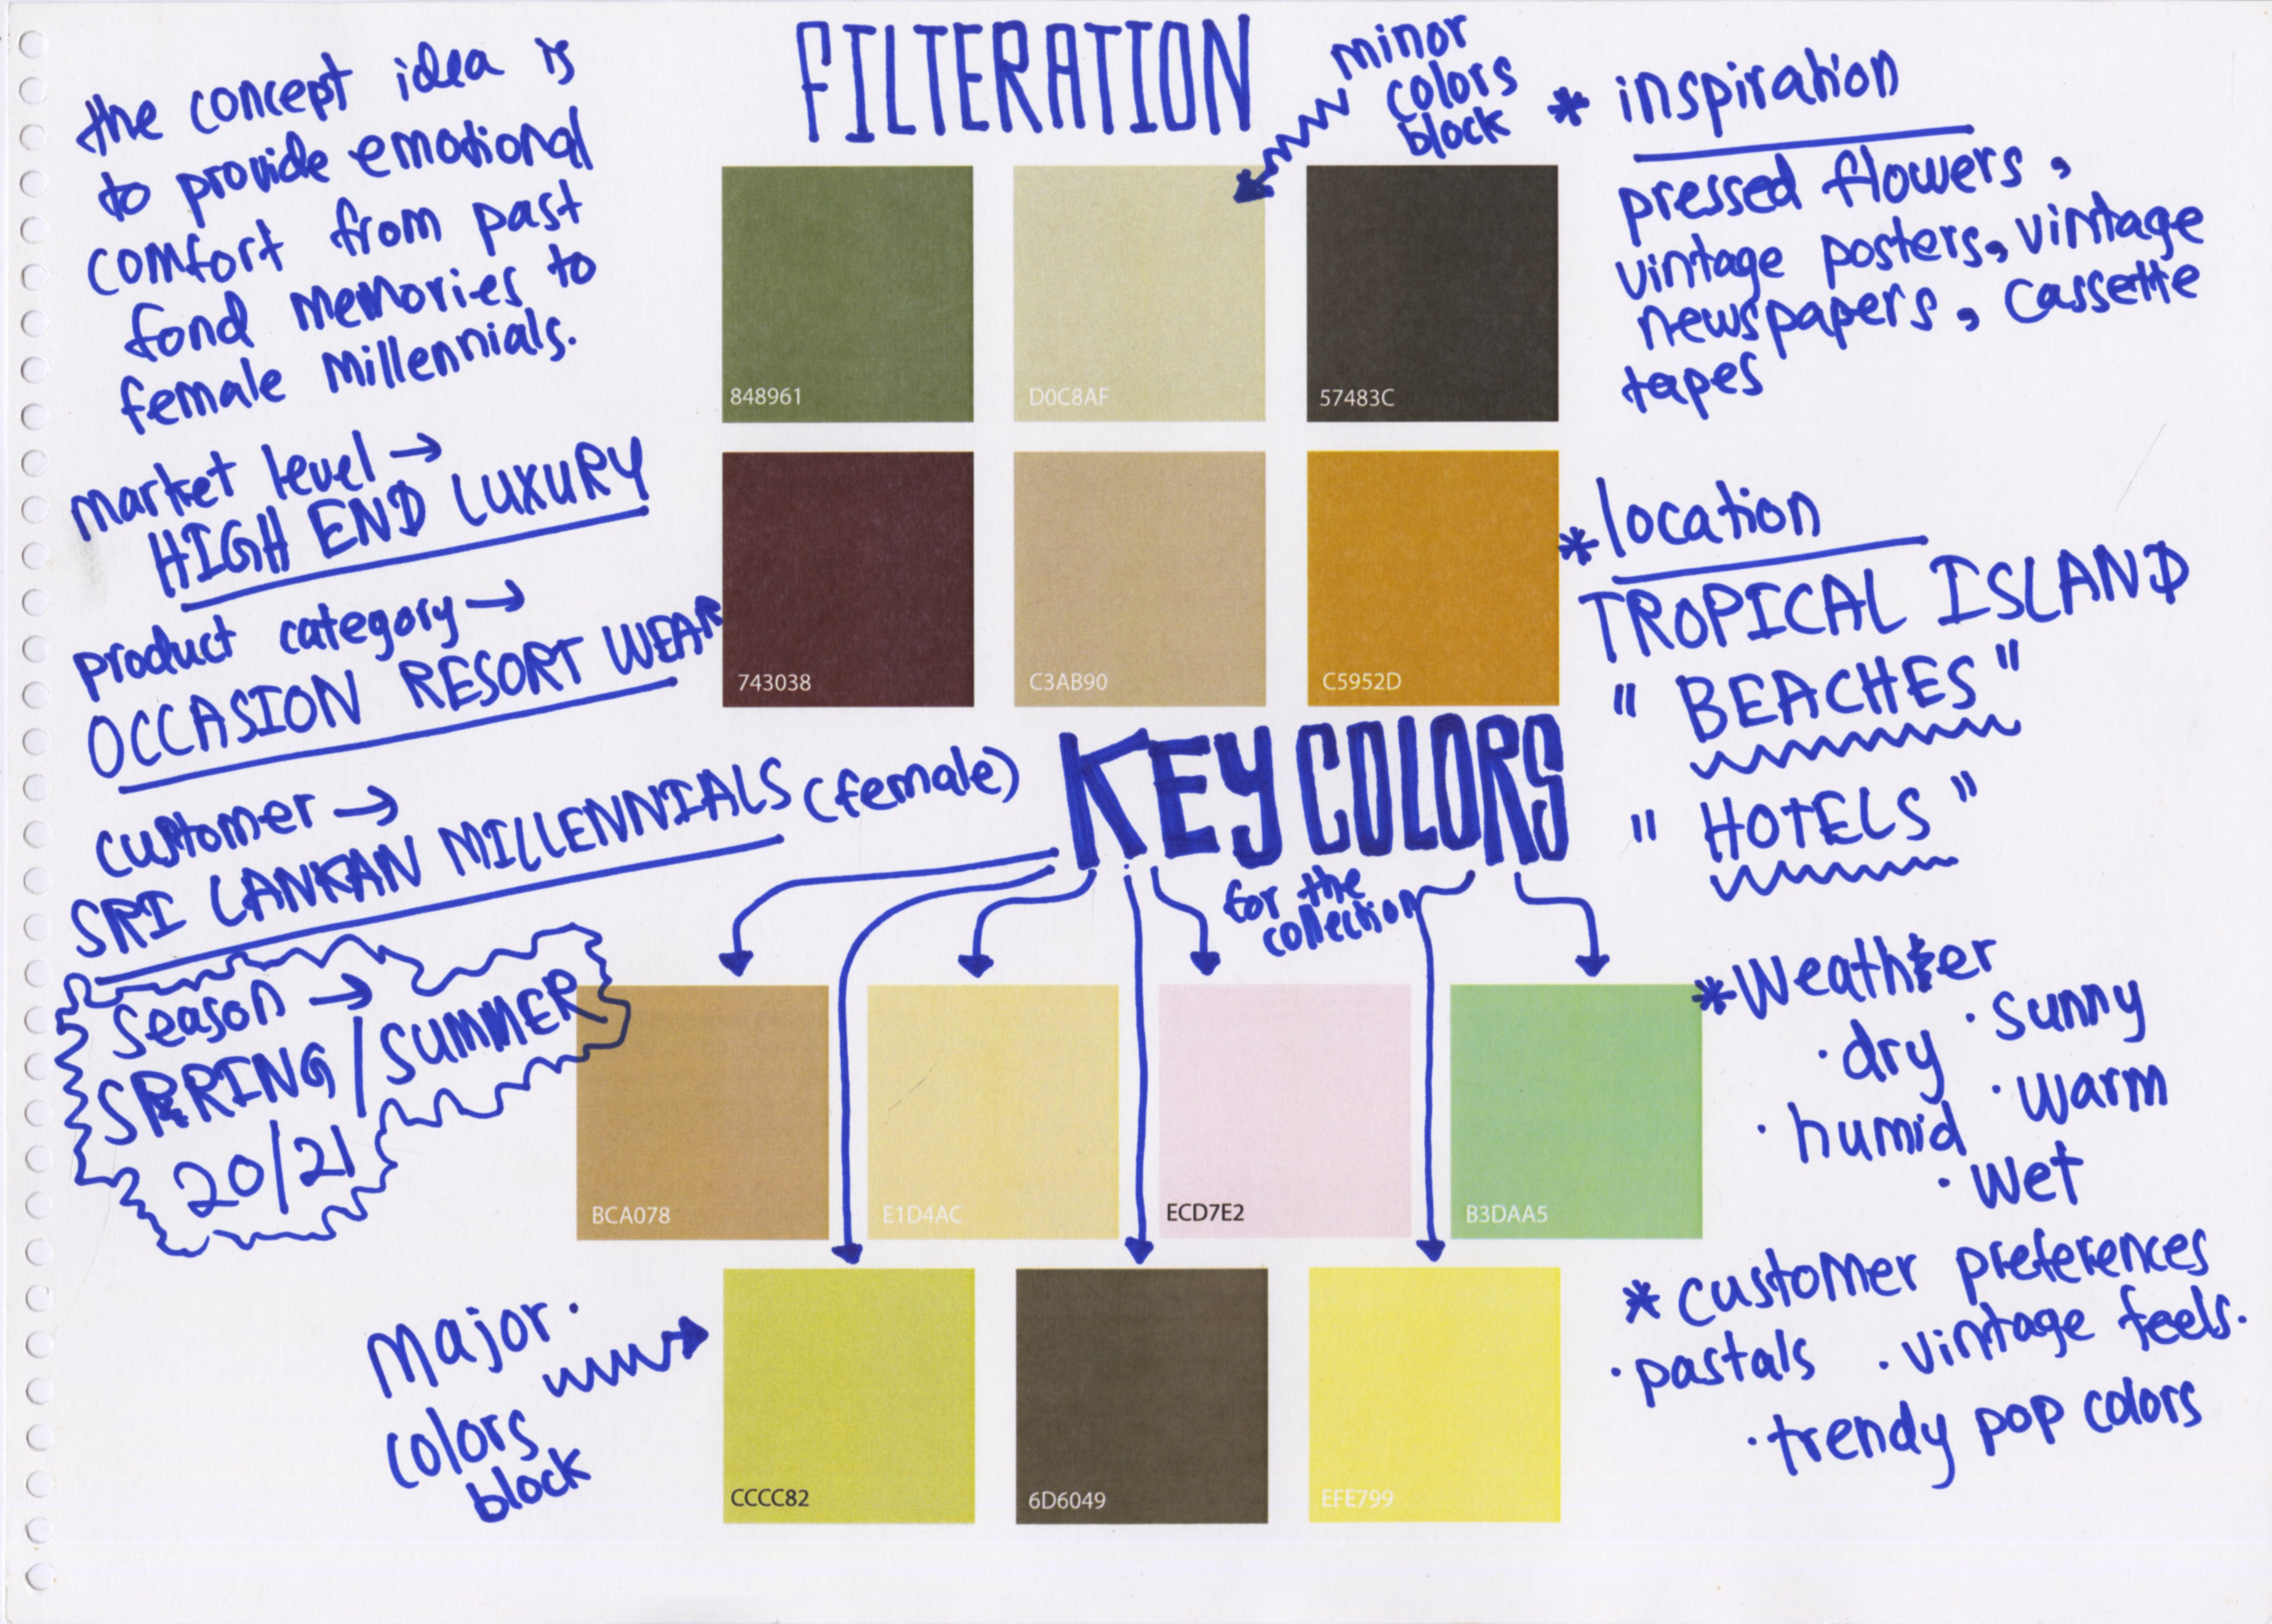 FILTERATION
minor
colors
block
the concept idea is
to provide emotional
comfort from past
fond memories to
female millennials.
market level →
HIGH END LUXURY
product category →
OCCASION RESORT WEAR
customer →
SRI LANKAN MILLENNIALS (female)
season →
SPRING/SUMMER
20/21
848961
D0C8AF
57483C
743038
C3AB90
C5952D
KEY COLORS
for the
collection
BCA078
E1D4AC
ECD7E2
B3DAA5
CCCC82
6D6049
EFE799
Major.
colors
block
* inspiration
pressed flowers,
vintage posters, vintage
newspapers, cassette
tapes
* location
TROPICAL ISLAND
" BEACHES "
" HOTELS "
* Weather
· dry · sunny
· humid · warm
· wet
* customer preferences
· pastals · vintage feels.
· trendy pop colors